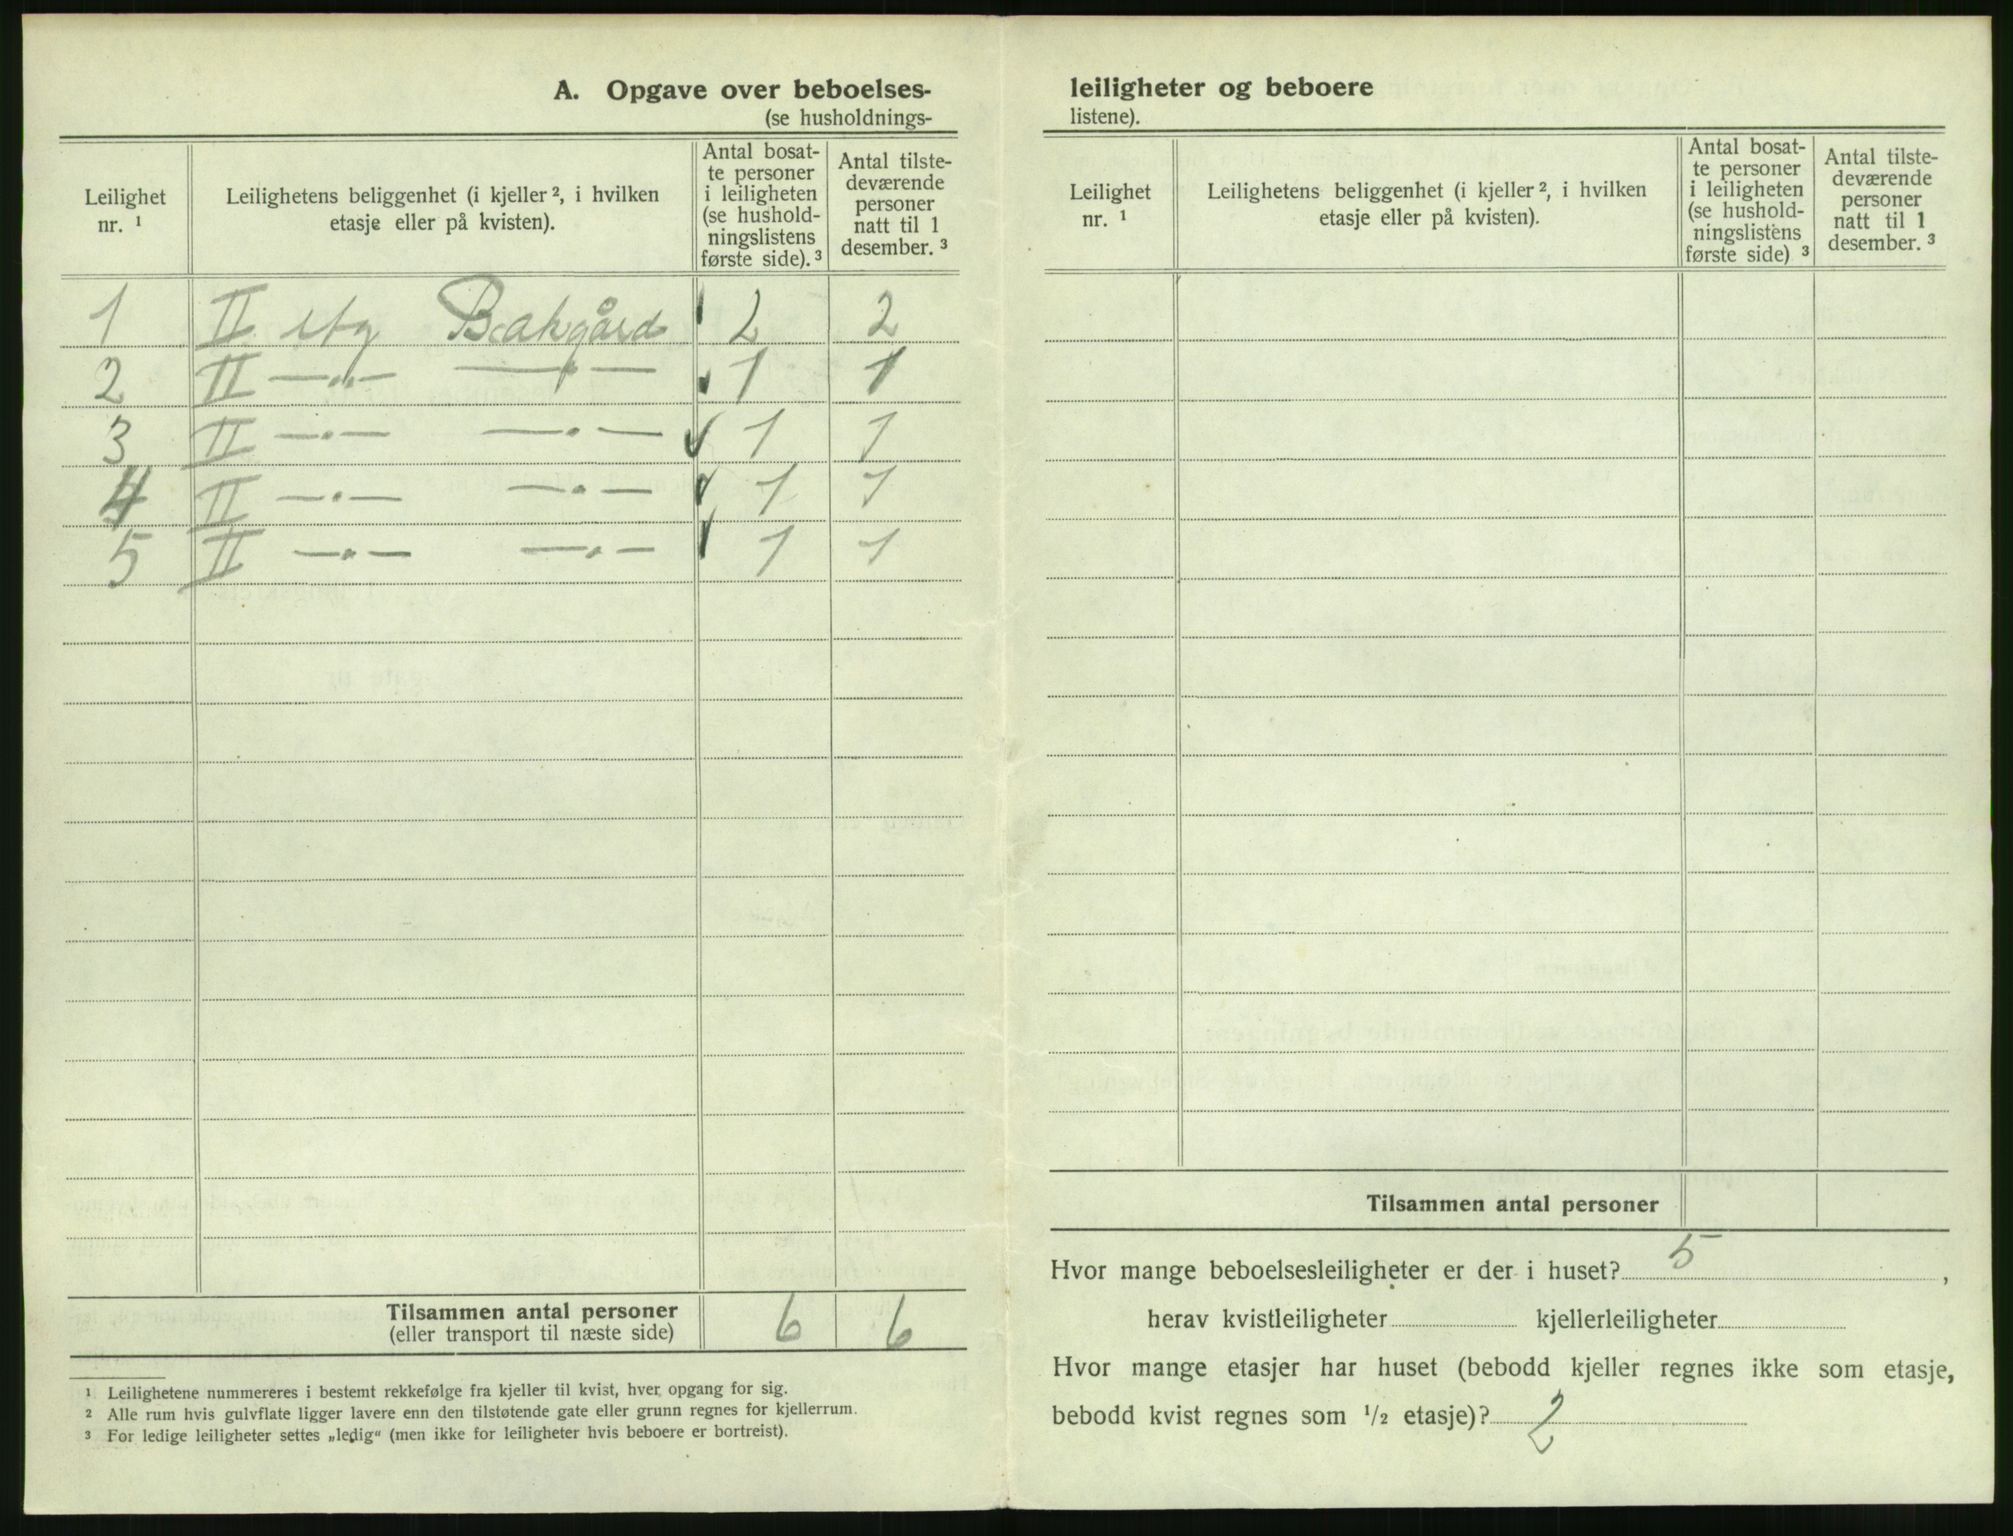 A. Opgave over beboelses-
(se husholdnings-
Leilighet nr. ¹
Leilighetens beliggenhet (i kjeller ², i hvilken etasje eller på kvisten).
Antal bosat-
te personer
i leiligheten
(se hushold-
ningslistens
første side). ³
Antal tilste-
deværende
personer
natt til 1
desember. ³
1 II etg Bakgård 2 2
2 II —"— —"— 1 1
3 II —"— —"— 1 1
4 II —"— —"— 1 1
5 II —"— —"— 1 1
Tilsammen antal personer 6 6
(eller transport til næste side)
¹ Leilighetene nummereres i bestemt rekkefølge fra kjeller til kvist, hver opgang for sig.
² Alle rum hvis gulvflate ligger lavere enn den tilstøtende gate eller grunn regnes for kjellerrum.
³ For ledige leiligheter settes „ledig“ (men ikke for leiligheter hvis beboere er bortreist).
leiligheter og beboere
listene).
Leilighet nr. ¹
Leilighetens beliggenhet (i kjeller ², i hvilken etasje eller på kvisten).
Antal bosat-
te personer
i leiligheten
(se hushold-
ningslistens
første side) ³
Antal tilste-
deværende
personer
natt til 1
desember. ³
Tilsammen antal personer
Hvor mange beboelsesleiligheter er der i huset? 5,
herav kvistleiligheter kjellerleiligheter
Hvor mange etasjer har huset (bebodd kjeller regnes ikke som etasje,
bebodd kvist regnes som ½ etasje)? 2